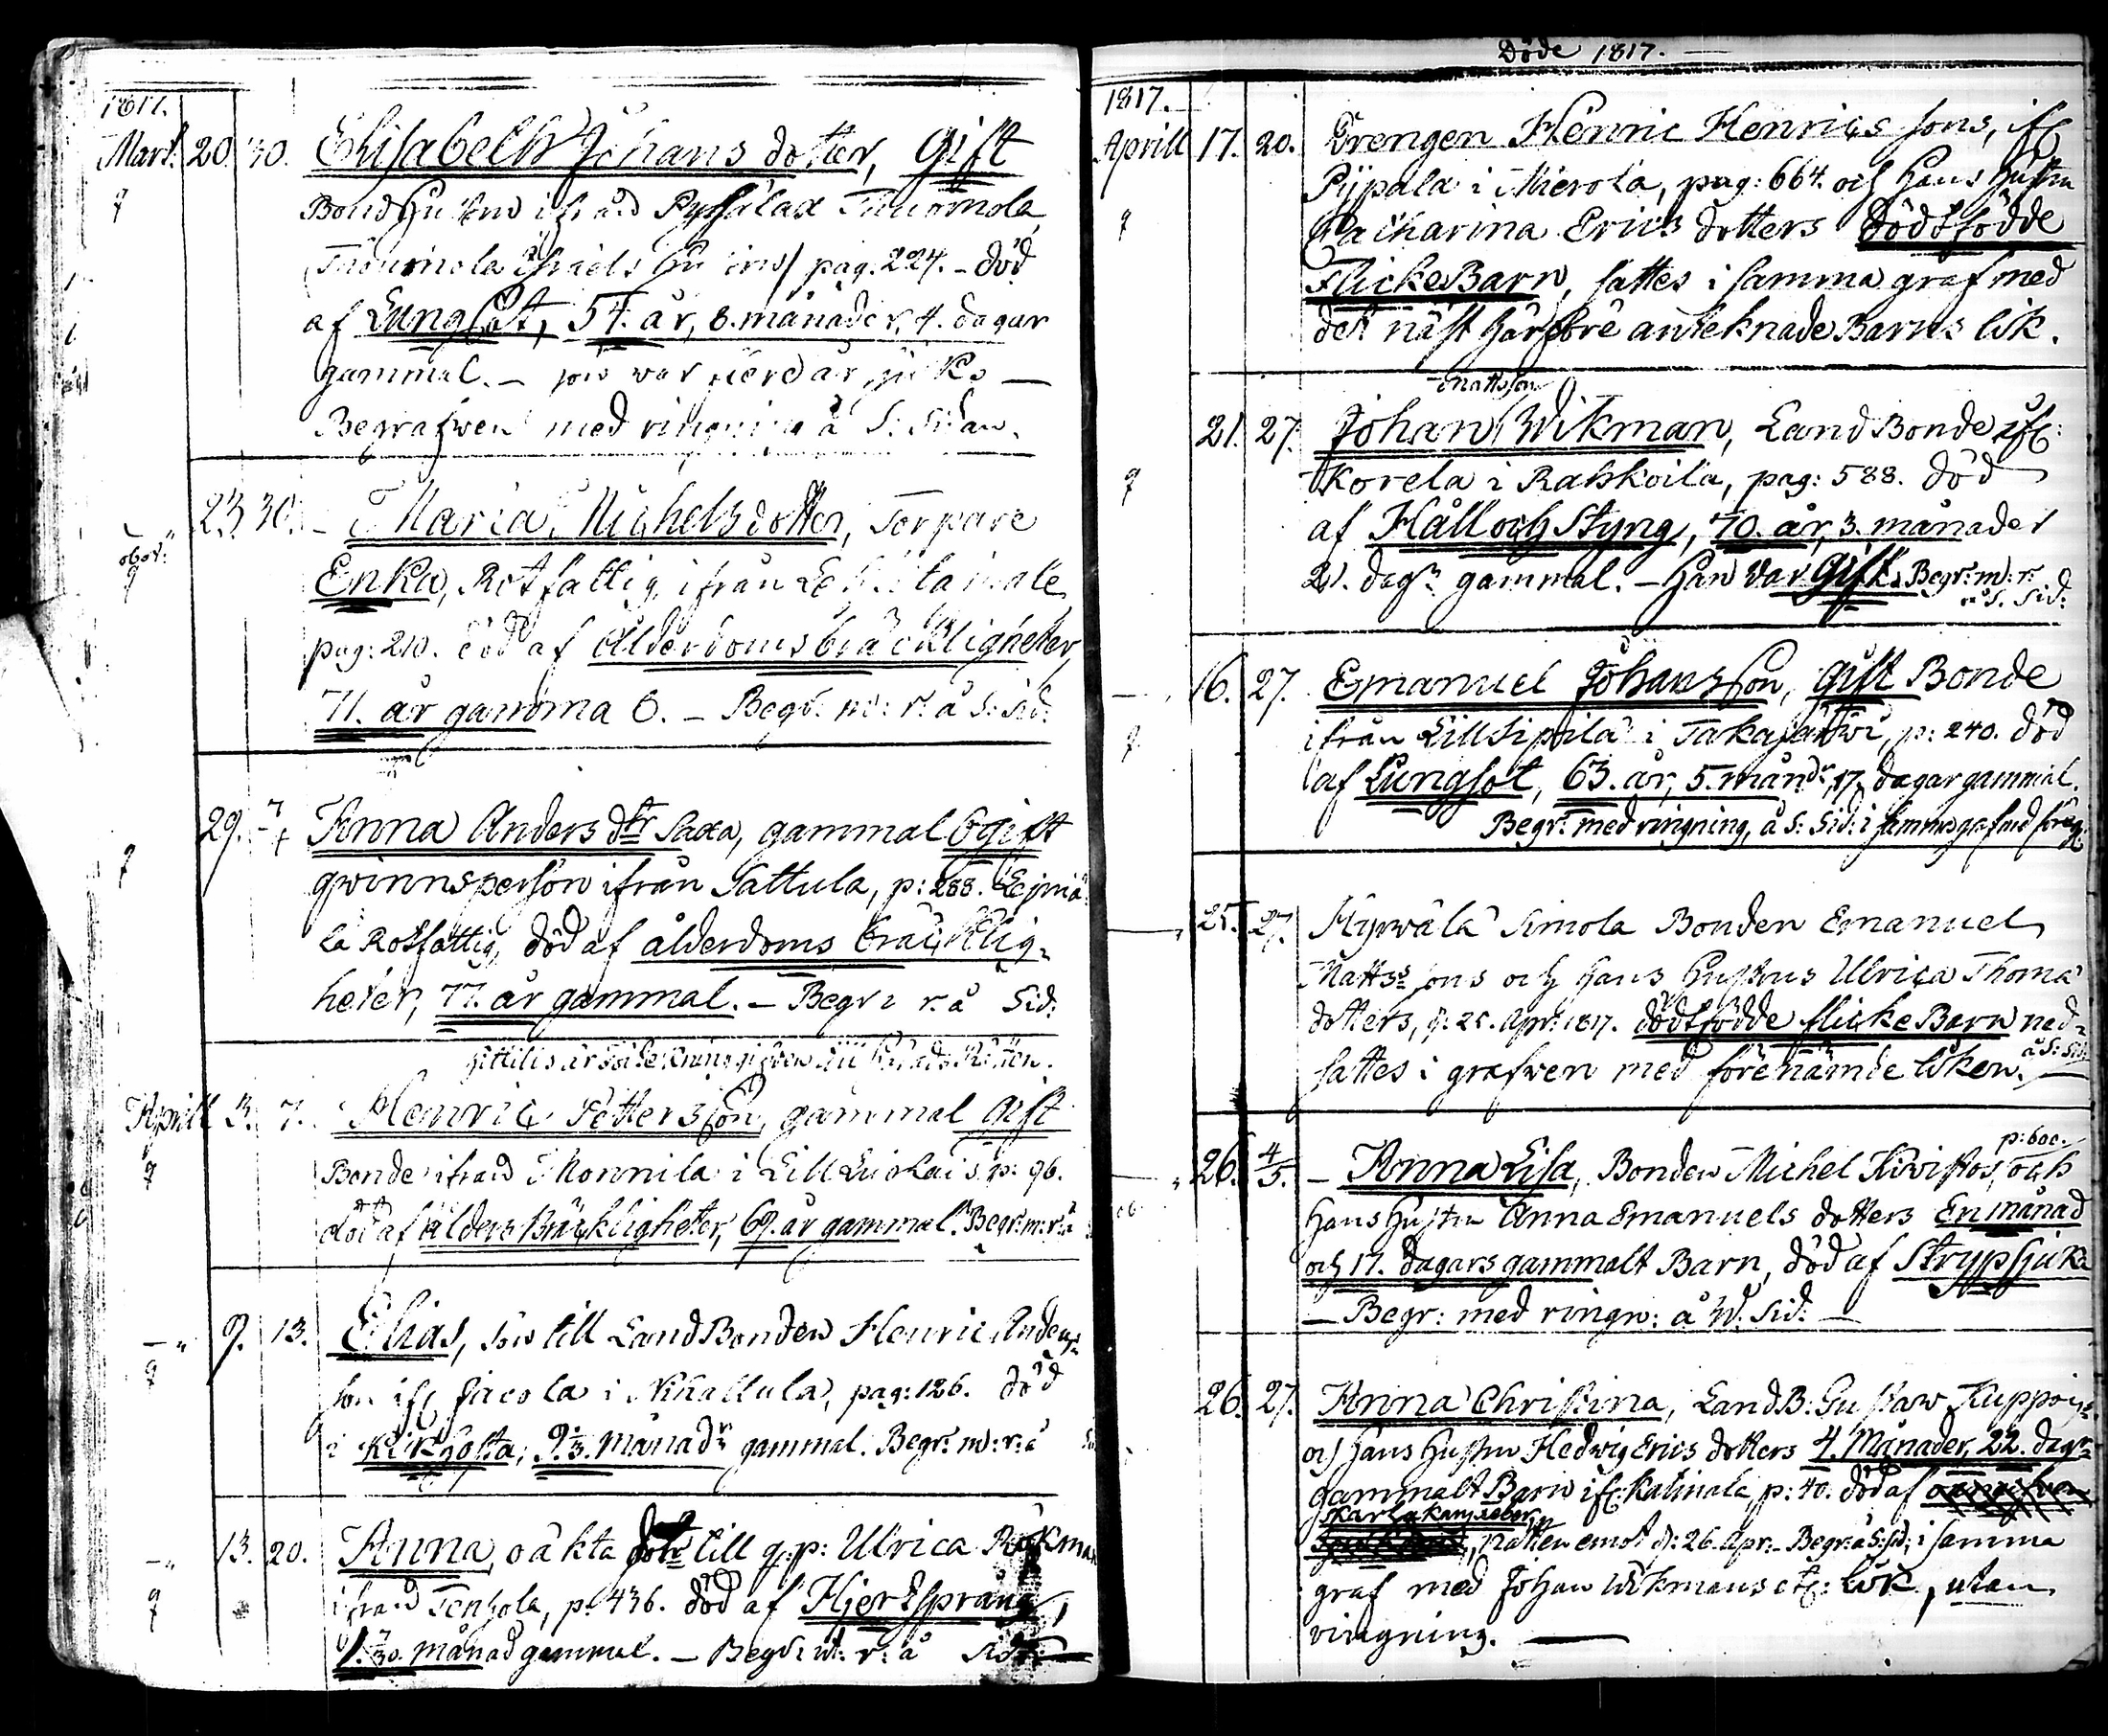 1817.
Mart. 20. 30. Elisabeth Johans dotter, Gift
Bond Hustru ifrån Tuomola
Tuomola Israels Hustru) pag: 224. – död
af Lungsot, 54. år, 8. månader, 4. dagar
gammal. – som war
Begrafwen med ringning å S: Sidan.
23. 30. – Maria Michelsdotter, Torpare
Enka, Rotfattig, ifrån
pag: 210. död af Ålderdomsbräckligheter,
71. år gammal. – Begr: m: r: å S: Sid:
29. 7/4 Anna Anders dtr Saxa, gammal Ogift
qwinnsperson ifrån Sattula, p: 288.
Rotfattig, död af ålderdoms bräcklig-
heter, 77. år gammal. – Begr: r: å Sid:
Aprill 3. 7. Henric Pettersson, gammal gift
Bonde ifrån Monnila i Lill p: 96.
död af ålders Bräckligheter, 69. år gammal. Begr: m: r: å
9. 13. Elias, son till LandBonden Henric Anders-
son ifr Jacola i pag: 126. död
i Kikhosta, 9. månadr gammal. Begr: m: r: å
13. 20. Anna, oäkta dotr till q:p: Ulrica
ifrån Tenhola, p: 436. död af Hjertsprång,
månad gammal. – Begr: m: r: å Sid:
Döde 1817.
1817.
Aprill 17. 20. Drengen Henric Henrics sons, ifr
Pijpala i Mierola, pag: 664. och Hans Hustru
Catharina Erics dotters dödfödde
FlickeBarn, sattes i samma graf med
det näst härföre anteknade Barns lik.
Mattsson
21. 27. Johan Wikman, LandBonde ifr:
Korela i Rahkoila, pag: 588. död
af Håll och Styng, 70. år, 3. månader
21. dagr gammal. – Han var Gift. Begr: m: r:
å S. Sid:
16. 27. Emanuel Johansson, gift Bonde
ifrån LillSipilä i Takajärwi, p: 240. död
af Lungsot, 63. år, 5. måndr, 17. dagar gammal.
Begr: med ringning, å S: Sid: i samma graf med föreg:
25. 27. Hyrwälä Simola Bonden Emanuel
Matts sons och Hans Hustrus Ulrica Thomæ
dotters, d: 25. Apr: 1817. dödfödde flickeBarn ned-
sattes i grafwen med förenämde liken. å S: Sid:
26. 4/5. – Anna Lisa, Bonden Michel Kivistos, p: 600. och
Hans Hustru Anna Emanuels dotters En månad
och 17. dagars gammalt Barn, död af Strypsjuka
– Begr: med ringn: å W. Sid: –
26. 27. Anna Christina, LandB: Gustaw
och Hans Hustru Hedwig Erics dotters 4. Månader, 22. dagr
gammalt Barn ifr: Katinala, p: 40. död af
Skarlakansfeber, natten emot d: 26. Apr. Begr: å S: Sid: i samma
graf med Johan Wikmans etc: Lik, utan
ringning. –